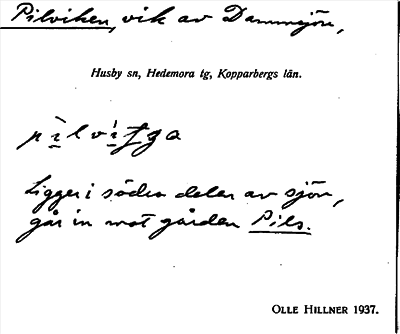 Pilviken, vik av Dammsjön,
Husby sn, Hedemora tg, Kopparbergs län.
Ligger i södra delen av sjön,
går in mot gården Pils.
OLLE HILLNER 1937.